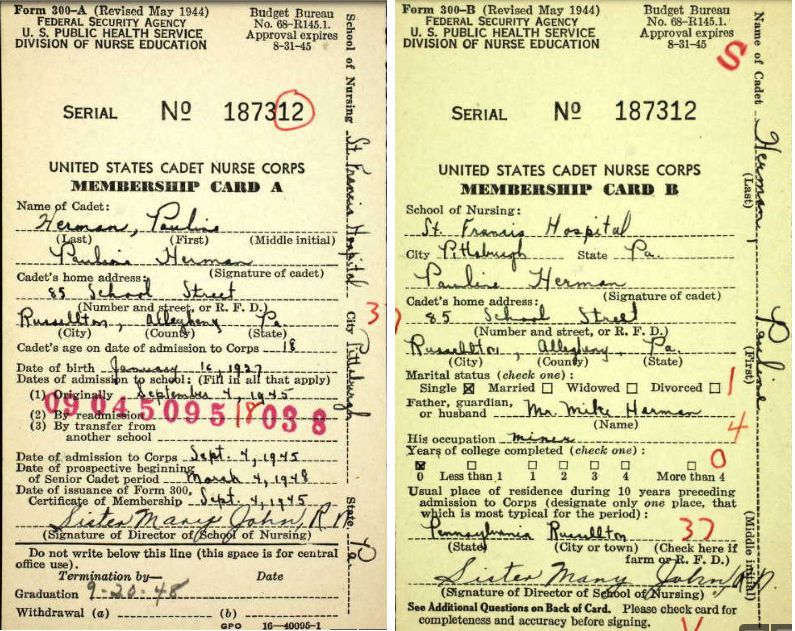 Form 300-A (Revised May 1944)
FEDERAL SECURITY AGENCY
U. S. PUBLIC HEALTH SERVICE
DIVISION OF NURSE EDUCATION
Budget Bureau
No. 68-R145.1.
Approval expires
8-31-45
SERIAL No 187312
UNITED STATES CADET NURSE CORPS
MEMBERSHIP CARD A
Name of Cadet:
Herman, Pauline
(Last) (First) (Middle initial)
Pauline Herman
(Signature of cadet)
Cadet's home address:
85 School Street
(Number and street, or R. F. D.)
Russellton, Allegheny Pa.
(City) (County) (State)
Cadet's age on date of admission to Corps 18
Date of birth January 16, 1927
Dates of admission to school: (Fill in all that apply)
(1) Originally September 4, 1945
09 04 5095 18 038
(2) By readmission
(3) By transfer from
another school
Date of admission to Corps Sept. 4, 1945
Date of prospective beginning
of Senior Cadet period March 4, 1948
Date of issuance of Form 300,
Certificate of Membership Sept. 4, 1945
Sister Mary John, R.N.
(Signature of Director of School of Nursing)
Do not write below this line (this space for central
office use).
Termination by— Date
Graduation 9-20-48
Withdrawal (a) (b)
GPO 16—40095-1
School of Nursing St. Francis Hospital City Pittsburgh State Pa
37
Form 300-B (Revised May 1944)
FEDERAL SECURITY AGENCY
U. S. PUBLIC HEALTH SERVICE
DIVISION OF NURSE EDUCATION
Budget Bureau
No. 68-R145.1.
Approval expires
8-31-45
S
SERIAL No 187312
UNITED STATES CADET NURSE CORPS
MEMBERSHIP CARD B
School of Nursing:
St. Francis Hospital
City Pittsburgh State Pa.
Pauline Herman
(Signature of cadet)
Cadet's home address:
85 School Street
(Number and street, or R. F. D.)
Russellton, Allegheny, Pa.
(City) (County) (State)
Marital status (check one):
Single Married Widowed Divorced
1
Father, guardian,
or husband Mr. Mike Herman
(Name)
4
His occupation miner
Years of college completed (check one):
0
0 Less than 1 1 2 3 4 More than 4
Usual place of residence during 10 years preceding
admission to Corps (designate only one place, that
which is most typical for the period):
37
Pennsylvania Russellton
(State) (City or town) (Check here if
farm or R. F. D.)
Sister Mary John, R.N.
(Signature of Director of School of Nursing)
See Additional Questions on Back of Card. Please check card for
completeness and accuracy before signing.
Name of Cadet Herman, Pauline
(Last) (First) (Middle initial)